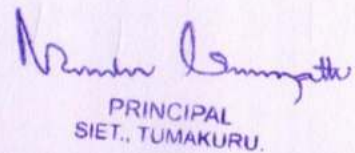 PRINCIPAL
SIET., TUMAKURU.